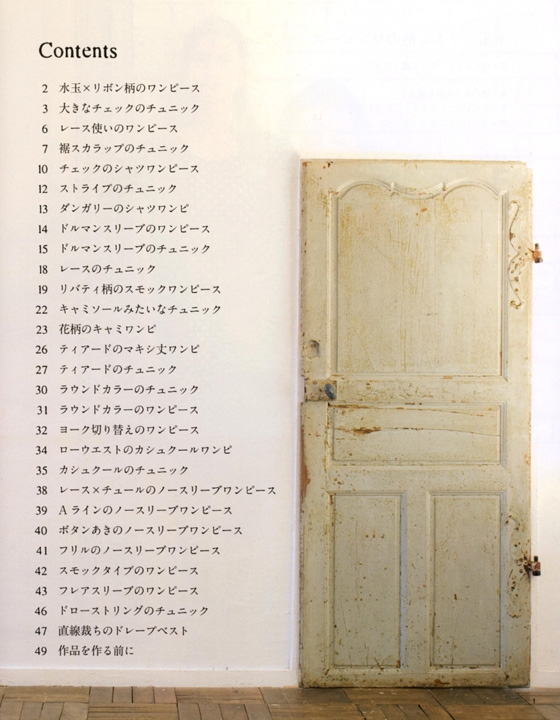 Contents
2 水玉×リボン柄のワンピース
3 大きなチェックのチュニック
6 レース使いのワンピース
7 裾スカラップのチュニック
10 チェックのシャツワンピース
12 ストライプのチュニック
13 ダンガリーのシャツワンピ
14 ドルマンスリーブのワンピース
15 ドルマンスリーブのチュニック
18 レースのチュニック
19 リバティ柄のスモックワンピース
22 キャミソールみたいなチュニック
23 花柄のキャミワンピ
26 ティアードのマキシ丈ワンピ
27 ティアードのチュニック
30 ラウンドカラーのチュニック
31 ラウンドカラーのワンピース
32 ヨーク切り替えのワンピース
34 ローウエストのカシュクールワンピ
35 カシュクールのチュニック
38 レース×チュールのノースリーブワンピース
39 Aラインのノースリーブワンピース
40 ボタンあきのノースリーブワンピース
41 フリルのノースリーブワンピース
42 スモックタイプのワンピース
43 フレアスリーブのワンピース
46 ドローストリングのチュニック
47 直線裁ちのドレープベスト
49 作品を作る前に